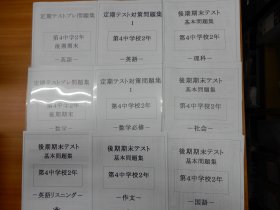 定期テストプレ問題集
第4中学2年
後期期末
ー英語ー
定期テスト対策問題集
1
第4中学校2年
ー英語ー
後期期末テスト
基本問題集
第4中学校2年
ー理科ー
定期テストプレ問題集
第4中学2年
後期期末
ー数学ー
定期テスト対策問題集
1
第4中学校2年
ー数学必修ー
後期期末テスト
基本問題集
第4中学校2年
ー社会ー
後期期末テスト
基本問題集
第4中学校2年
ー英語リスニングー
後期期末テスト
基本問題集
第4中学校2年
ー作文ー
後期期末テスト
基本問題集
第4中学校2年
ー国語ー